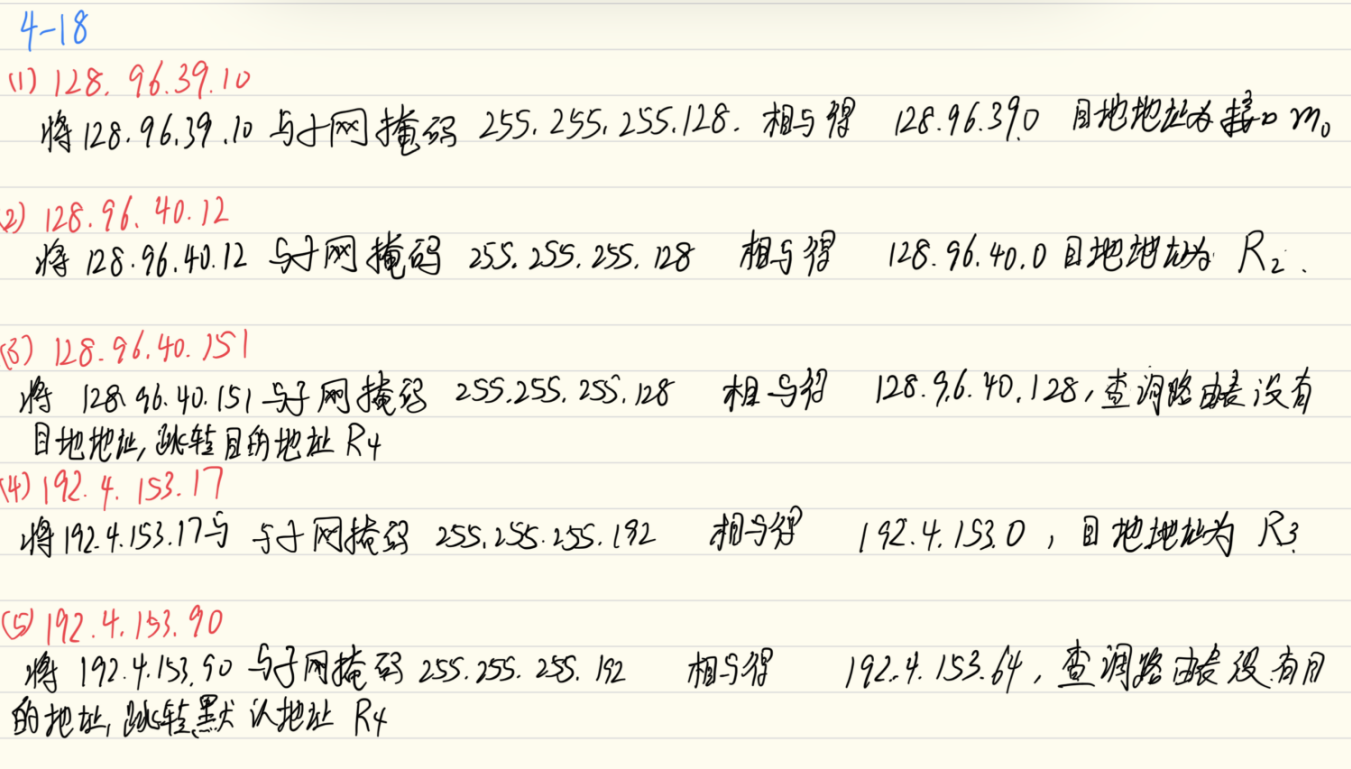 4-18
(1) 128. 96.39.10
将128.96.39.10 与子网掩码 255.255.255.128. 相与得 128.96.39.0 目地地址为接口 m0
2) 128.96. 40.12
将 128.96.40.12 与子网掩码 255.255.255.128 相与得 128.96.40.0 目地地址为 R2.
(3) 128.96.40.151
将 128.96.40.151 与子网掩码 255.255.255.128 相与得 128.96.40.128,查询路由表没有
目地地址,跳转目的地址 R4
(4) 192.4.153.17
将192.4.153.17与 与子网掩码 255.255.255.192 相与得 192.4.153.0 , 目地地址为 R3.
(5) 192.4.153.90
将 192.4.153.90 与子网掩码 255.255.255.192 相与得 192.4.153.64 , 查询路由表没有目
的地址,跳转默认地址 R4